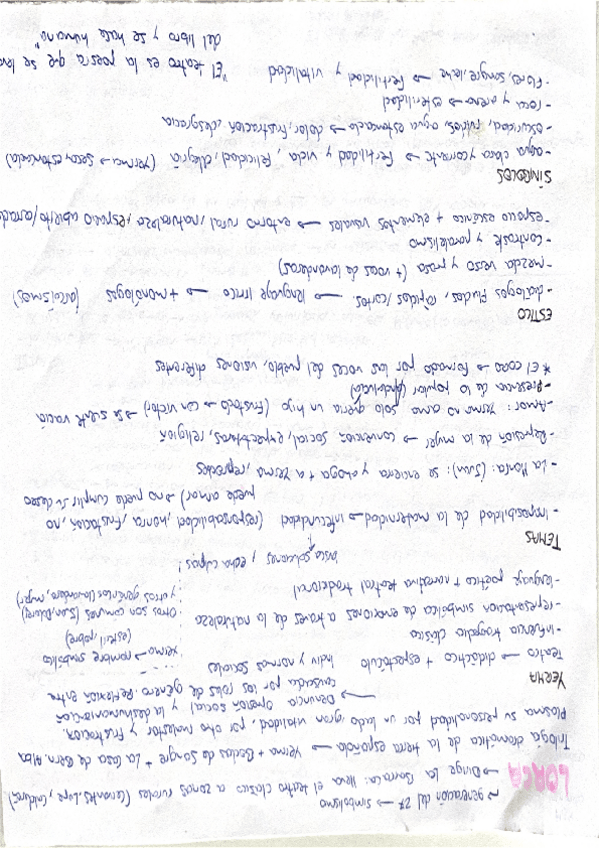 LORCA
→ generación del 27 → simbolismo
→ Dirige La Barraca: lleva el teatro clásico a zonas rurales (Cervantes, Lope, Calderón)
Trilogía dramática de la tierra española → Yerma + Bodas de Sangre + La Casa de Bern. Alba
Plasma su personalidad por un lado gran vitalidad, por otro malestar y frustración.
→ Denuncia opresión social y la deshumanización
causada por los roles de género. Reflexión entre
indiv y normas sociales
YERMA
Teatro → didáctico + espectáculo
- influencia tragedia clásica
- representación simbólica de emociones a través de la naturaleza
- lenguaje poético + narrativa teatral tradicional
Yerma → nombre simbólico
(estéril pobre)
Otros son comunes (Juan, Dolores)
y otros genéricos (lavandera, mujer)
busca soluciones y echa culpas
TEMAS
- Imposibilidad de la maternidad → infecundidad (responsabilidad, honra, frustración, no
puede amor) → no puede cumplir su deseo
- La Honra: (Juan): se encierra y ahoga + a Yerma, represiones
- Represión de la mujer → convenciones social, expectativas, religión
- Amor: Yerma no ama solo quería un hijo (frustrado → con Victor) → se siente vacía
- Presencia de lo popular (Andalucía)
* El coro → formado por las voces del pueblo, visiones diferentes
ESTILO
- diálogos fluidos, rápidos/cortos → lenguaje lírico → + monólogos (laísmos)
- mezcla verso y prosa (+ voces de lavanderas)
- contraste y paralelismo
- espacio escénico + elementos visuales → entorno rural, naturaleza, espacio abierto/cerrado
SÍMBOLOS
- agua clara y corriente → fertilidad y vida, felicidad, alegría (Yerma → seca, estancada)
- oscuridad, ruidos, agua estancada → dolor, frustración, desgracia
- roca y arena → esterilidad
- flores, sangre, leche → fertilidad y vitalidad
"El teatro es la poesía que se
del libro y se hace humana"